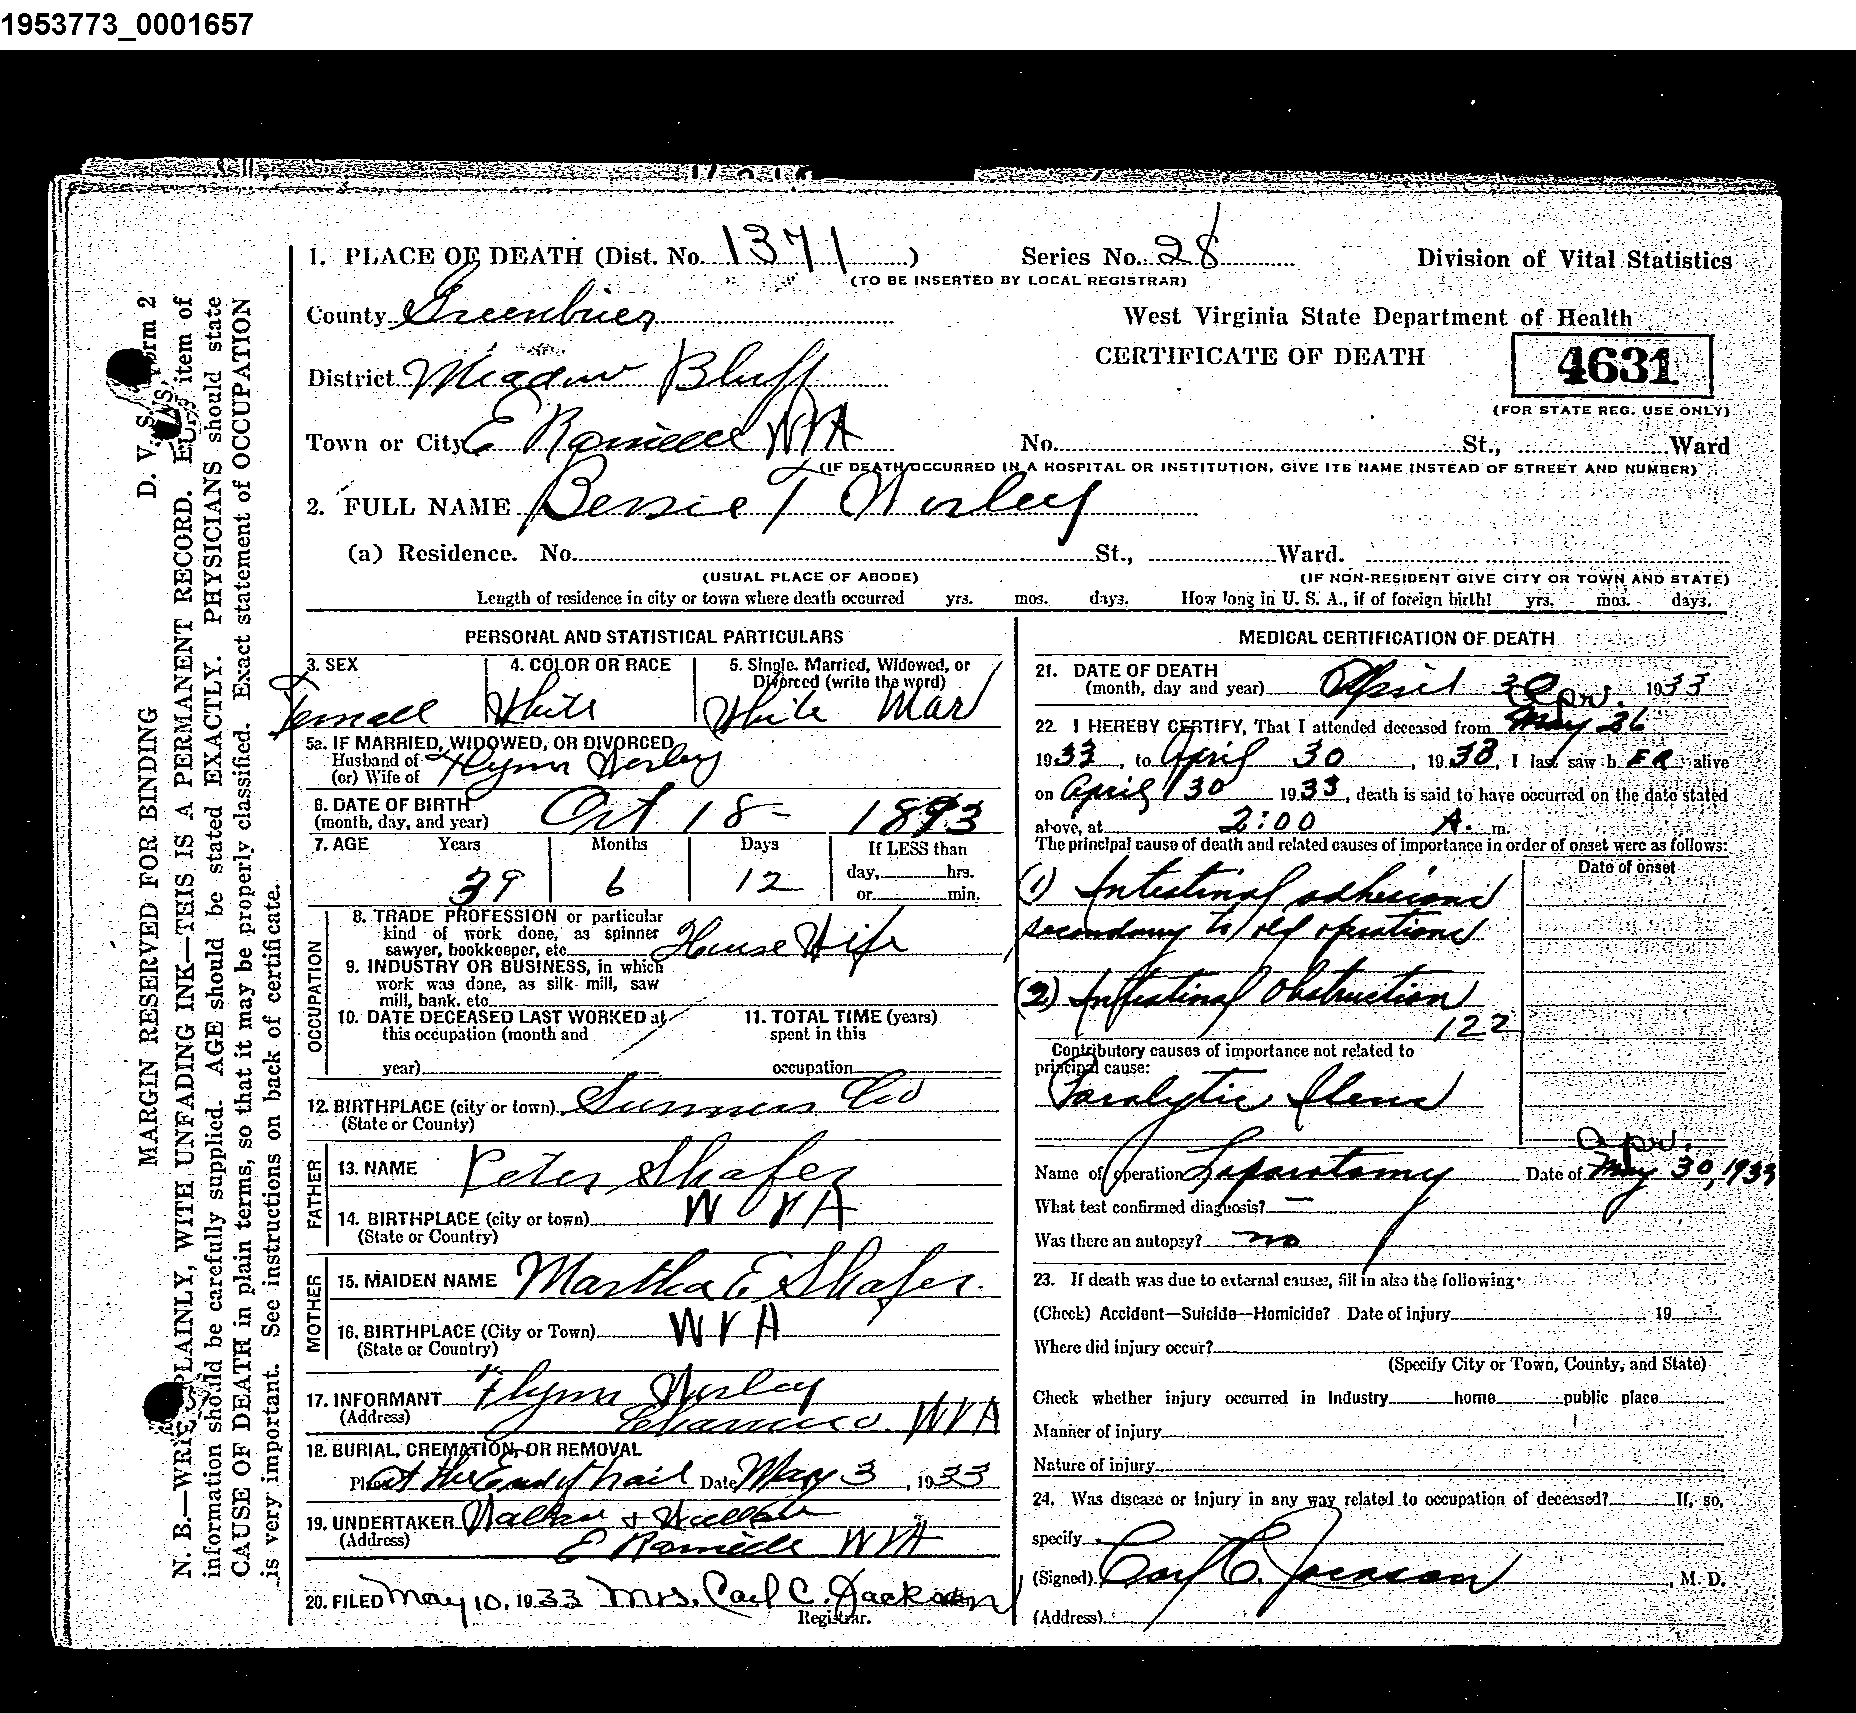 1953773_0001657
1. PLACE OF DEATH (Dist. No. 1371 )
Series No. 28
Division of Vital Statistics
(TO BE INSERTED BY LOCAL REGISTRAR)
County Greenbrier
West Virginia State Department of Health
CERTIFICATE OF DEATH
4631
(FOR STATE REG. USE ONLY)
District Meadow Bluff
Town or City E Rainelle W VA
No. St., Ward
(IF DEATH OCCURRED IN A HOSPITAL OR INSTITUTION, GIVE ITS NAME INSTEAD OF STREET AND NUMBER)
2. FULL NAME Bessie T Worley
(a) Residence. No. St., Ward.
(USUAL PLACE OF ABODE)
(IF NON-RESIDENT GIVE CITY OR TOWN AND STATE)
Length of residence in city or town where death occurred yrs. mos. days. How long in U. S. A., if of foreign birth? yrs. mos. days.
PERSONAL AND STATISTICAL PARTICULARS
3. SEX
4. COLOR OR RACE
5. Single, Married, Widowed, or
Divorced (write the word)
Femall White White Mar
5a. IF MARRIED, WIDOWED, OR DIVORCED
Husband of
(or) Wife of Flynn Worley
6. DATE OF BIRTH
(month, day, and year) Oct 18- 1893
7. AGE Years Months Days If LESS than
day, hrs.
39 6 12
or min.
OCCUPATION
8. TRADE PROFESSION or particular
kind of work done, as spinner
sawyer, bookkeeper, etc. House Wife
9. INDUSTRY OR BUSINESS, in which
work was done, as silk mill, saw
mill, bank, etc.
10. DATE DECEASED LAST WORKED at
this occupation (month and
year)
11. TOTAL TIME (years)
spent in this
occupation
12. BIRTHPLACE (city or town) Summers Co
(State or County)
FATHER
13. NAME Peter Shafer
14. BIRTHPLACE (city or town) W VA
(State or Country)
MOTHER
15. MAIDEN NAME Martha E Shafer.
16. BIRTHPLACE (City or Town) W VA
(State or Country)
17. INFORMANT Flynn Worley
(Address) W VA
18. BURIAL, CREMATION, OR REMOVAL
Place at the End of trail Date May 3, 1933
19. UNDERTAKER &
(Address) E Rainelle W VA
20. FILED May 10, 1933 Mrs. Carl C. Jackson
Registrar.
MEDICAL CERTIFICATION OF DEATH
21. DATE OF DEATH
(month, day and year) April 30 1933
Apr.
22. I HEREBY CERTIFY, That I attended deceased from May 26
1933, to April 30, 1933, I last saw h ER alive
on April 30 1933, death is said to have occurred on the date stated
above, at 2:00 A. m.
The principal cause of death and related causes of importance in order of onset were as follows:
Date of onset
(1) Intestinal adhesions
secondary to old operations
(2) Intestinal Obstruction
122
Contributory causes of importance not related to
principal cause:
Paralytic Ileus
Apr.
Name of operation Laparotomy Date of May 30, 1933
What test confirmed diagnosis? —
Was there an autopsy? no
23. If death was due to external causes, fill in also the following:
(Check) Accident—Suicide—Homicide? Date of injury 19
Where did injury occur?
(Specify City or Town, County, and State)
Check whether injury occurred in Industry home public place
Manner of injury
Nature of injury
24. Was disease or injury in any way related to occupation of deceased? If, so,
specify
(Signed) Carl C. Jackson, M. D.
(Address)
MARGIN RESERVED FOR BINDING
D. V. S. Form 2
N. B.—WRITE PLAINLY, WITH UNFADING INK—THIS IS A PERMANENT RECORD. Every item of
information should be carefully supplied. AGE should be stated EXACTLY. PHYSICIANS should state
CAUSE OF DEATH in plain terms, so that it may be properly classified. Exact statement of OCCUPATION
is very important. See instructions on back of certificate.